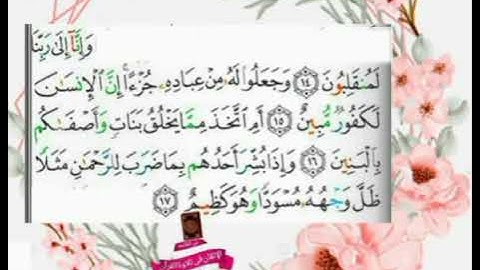 وَإِنَّآ إِلَىٰ رَبِّنَا
لَمُنقَلِبُونَ ١٤ وَجَعَلُوا۟ لَهُۥ مِنْ عِبَادِهِۦ جُزْءًا ۚ إِنَّ ٱلْإِنسَـٰنَ
لَكَفُورٌ مُّبِينٌ ١٥ أَمِ ٱتَّخَذَ مِمَّا يَخْلُقُ بَنَاتٍ وَأَصْفَىٰكُم
بِٱلْبَنِينَ ١٦ وَإِذَا بُشِّرَ أَحَدُهُم بِمَا ضَرَبَ لِلرَّحْمَـٰنِ مَثَلًا
ظَلَّ وَجْهُهُۥ مُسْوَدًّا وَهُوَ كَظِيمٌ ١٧